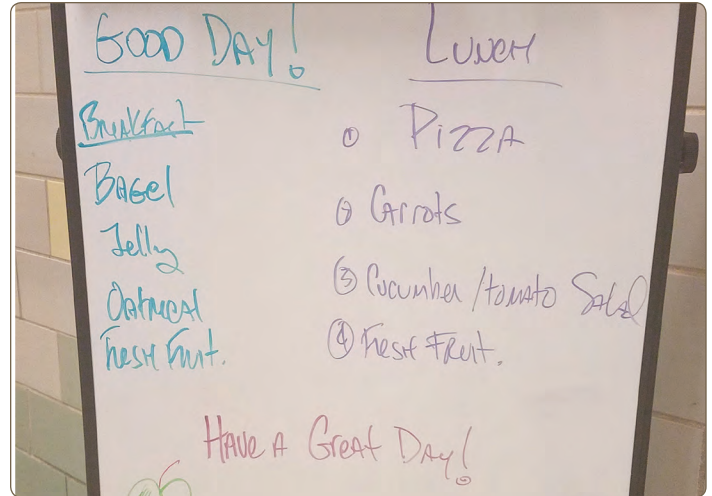 GOOD DAY!
Breakfast
Bagel
Jelly
Oatmeal
Fresh Fruit.
Lunch
① Pizza
② Carrots
③ Cucumber / tomato Salad
④ Fresh Fruit.
Have A Great Day!